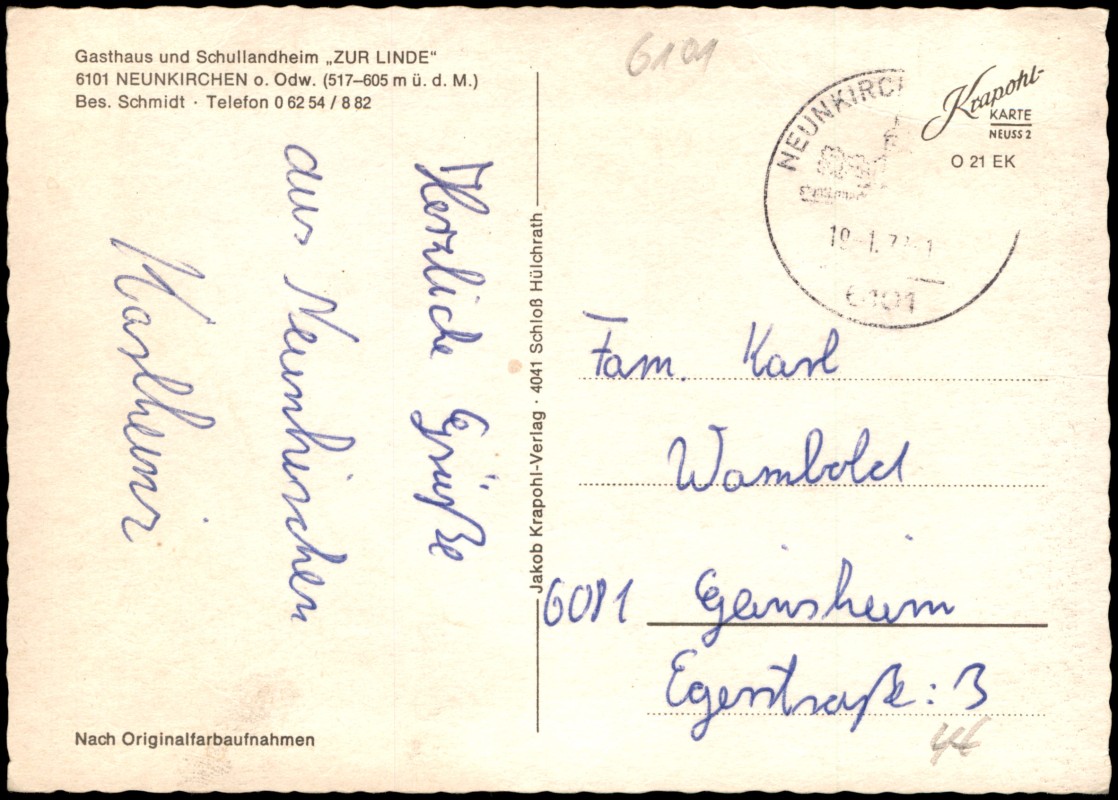 Gasthaus und Schullandheim „ZUR LINDE“
6101 NEUNKIRCHEN o. Odw. (517–605 m ü. d. M.)
Bes. Schmidt · Telefon 0 62 54 / 8 82
Herzliche Grüße
aus Neunkirchen
Karlheinz
Nach Originalfarbaufnahmen
Jakob Krapohl-Verlag · 4041 Schloß Hülchrath
6101
NEUNKIRCH
6101
Krapohl-
KARTE
NEUSS 2
O 21 EK
Fam. Karl
Wambold
6081 Geinsheim
Egerstraße: 3
44